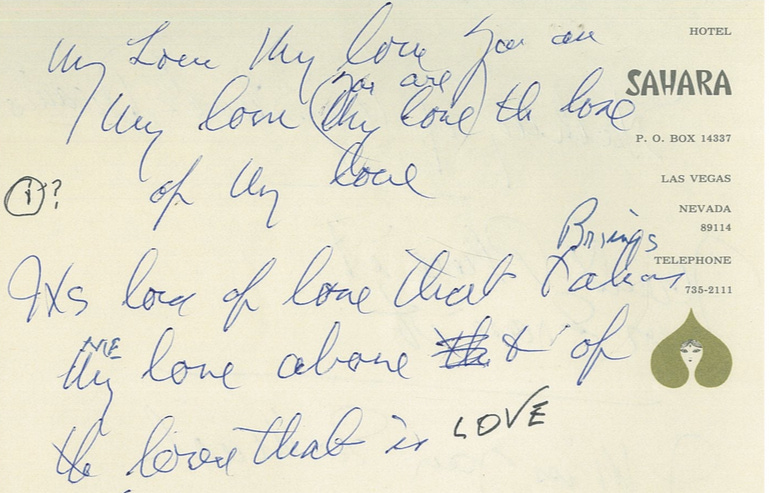 My Love My love you are
you are
My love (My love) the love
of My love
①?
Brings
Its love of love that takes
ME
My love above the & of
the love that is LOVE
HOTEL
SAHARA
P. O. BOX 14337
LAS VEGAS
NEVADA
89114
TELEPHONE
735-2111